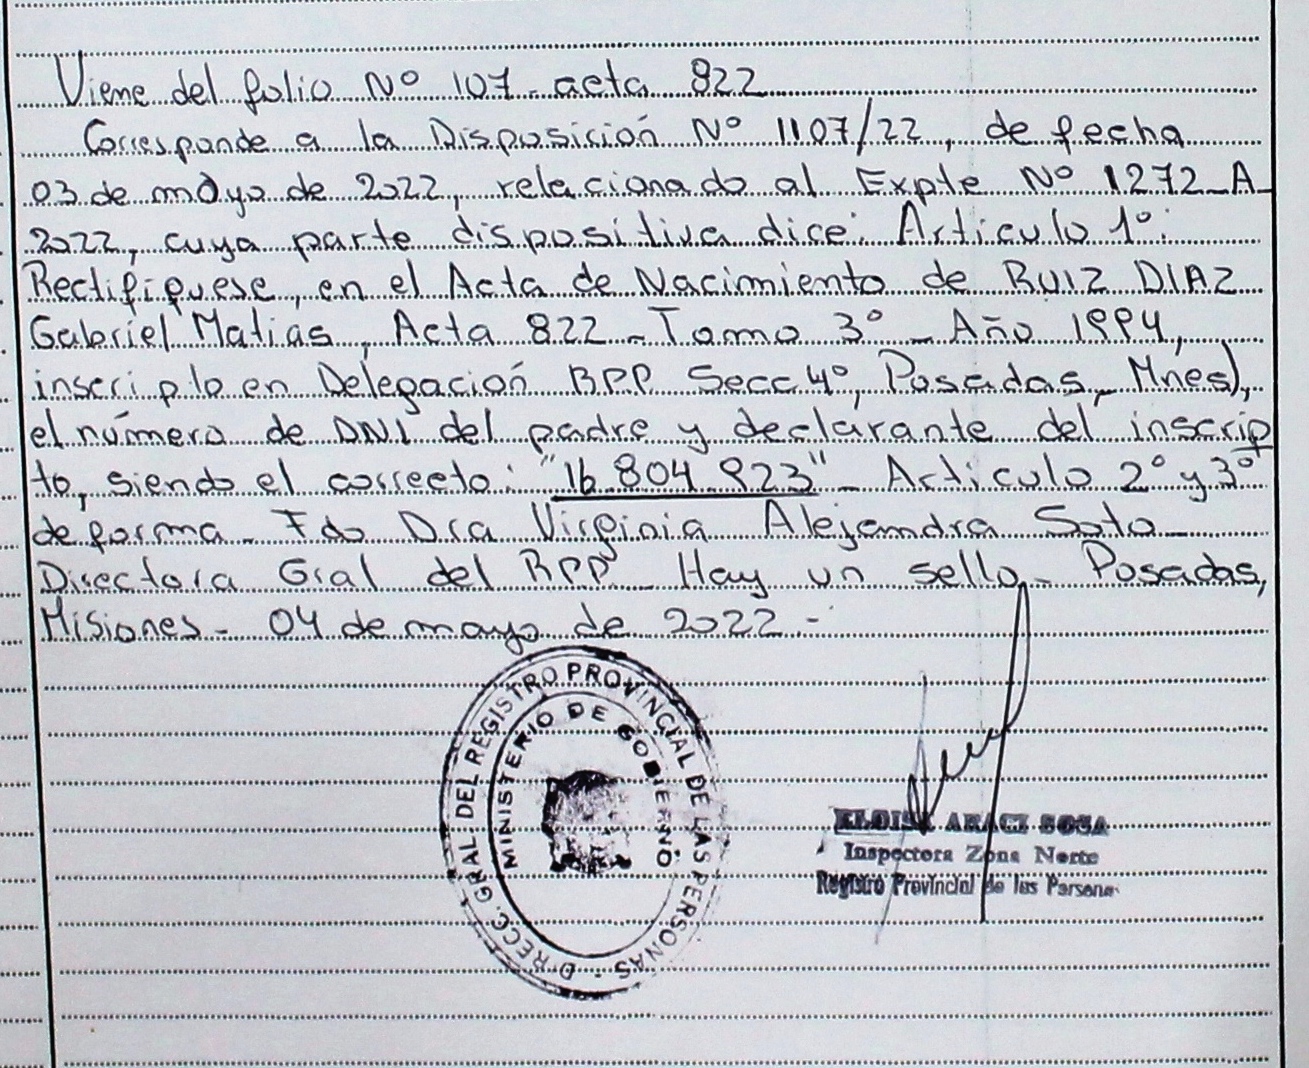 Viene del folio Nº 107 - acta 822
Corresponde a la Disposición Nº 1107/22, de fecha
03 de mayo de 2022, relacionado al Expte Nº 1272-A
2022, cuya parte dispositiva dice: Articulo 1º:
Rectifíquese, en el Acta de Nacimiento de RUIZ DIAZ
Gabriel Matias, Acta 822 - Tomo 3º - Año 1994,
inscripto en Delegación RPP Secc 4º, Posadas, Mnes),
el número de DNI del padre y declarante del inscrip
to, siendo el correcto: "16 804 923" - Articulo 2º y 3º
de forma - Fdo Dra Virginia Alejandra Soto -
Directora Gral del RPP - Hay un sello - Posadas,
Misiones - 04 de mayo de 2022.-
DIRECC. GRAL. DEL REGISTRO PROVINCIAL DE LAS PERSONAS
MINISTERIO DE GOBIERNO
ELOISA ARACI SOSA
Inspectora Zona Norte
Registro Provincial de las Persona